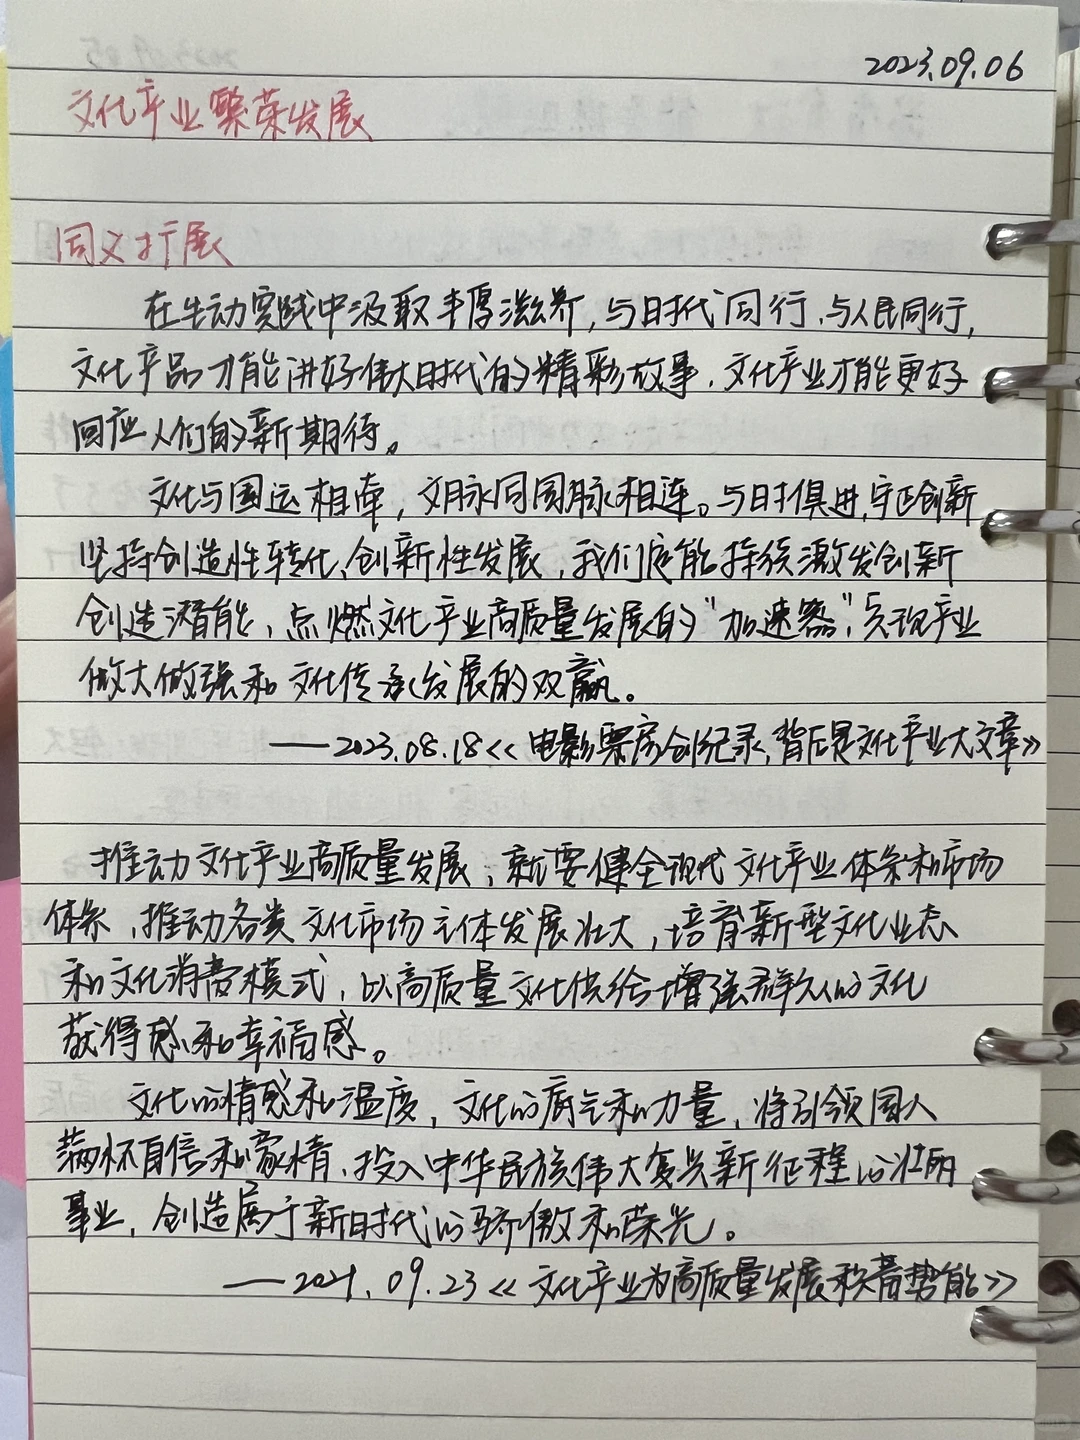 2023.09.06
文化产业繁荣发展
同义扩展
在生动实践中汲取丰厚滋养,与时代同行、与人民同行,
文化产品才能讲好伟大时代的精彩故事,文化产业才能更好
回应人们的新期待。
文化与国运相牵,文脉同国脉相连。与时俱进,守正创新
坚持创造性转化、创新性发展,我们定能持续激发创新
创造潜能,点燃文化产业高质量发展的“加速器”,实现产业
做大做强和文化传承发展的双赢。
——2023.08.18《电影票房创纪录,背后是文化产业大文章》
推动文化产业高质量发展,就要健全现代文化产业体系和市场
体系,推动各类文化市场主体发展壮大,培育新型文化业态
和文化消费模式,以高质量文化供给增强群众的文化
获得感和幸福感。
文化的情感和温度,文化的底气和力量,将引领国人
满怀自信和豪情,投入中华民族伟大复兴新征程的壮丽
事业,创造属于新时代的骄傲和荣光。
——2021.09.23《文化产业为高质量发展积蓄势能》